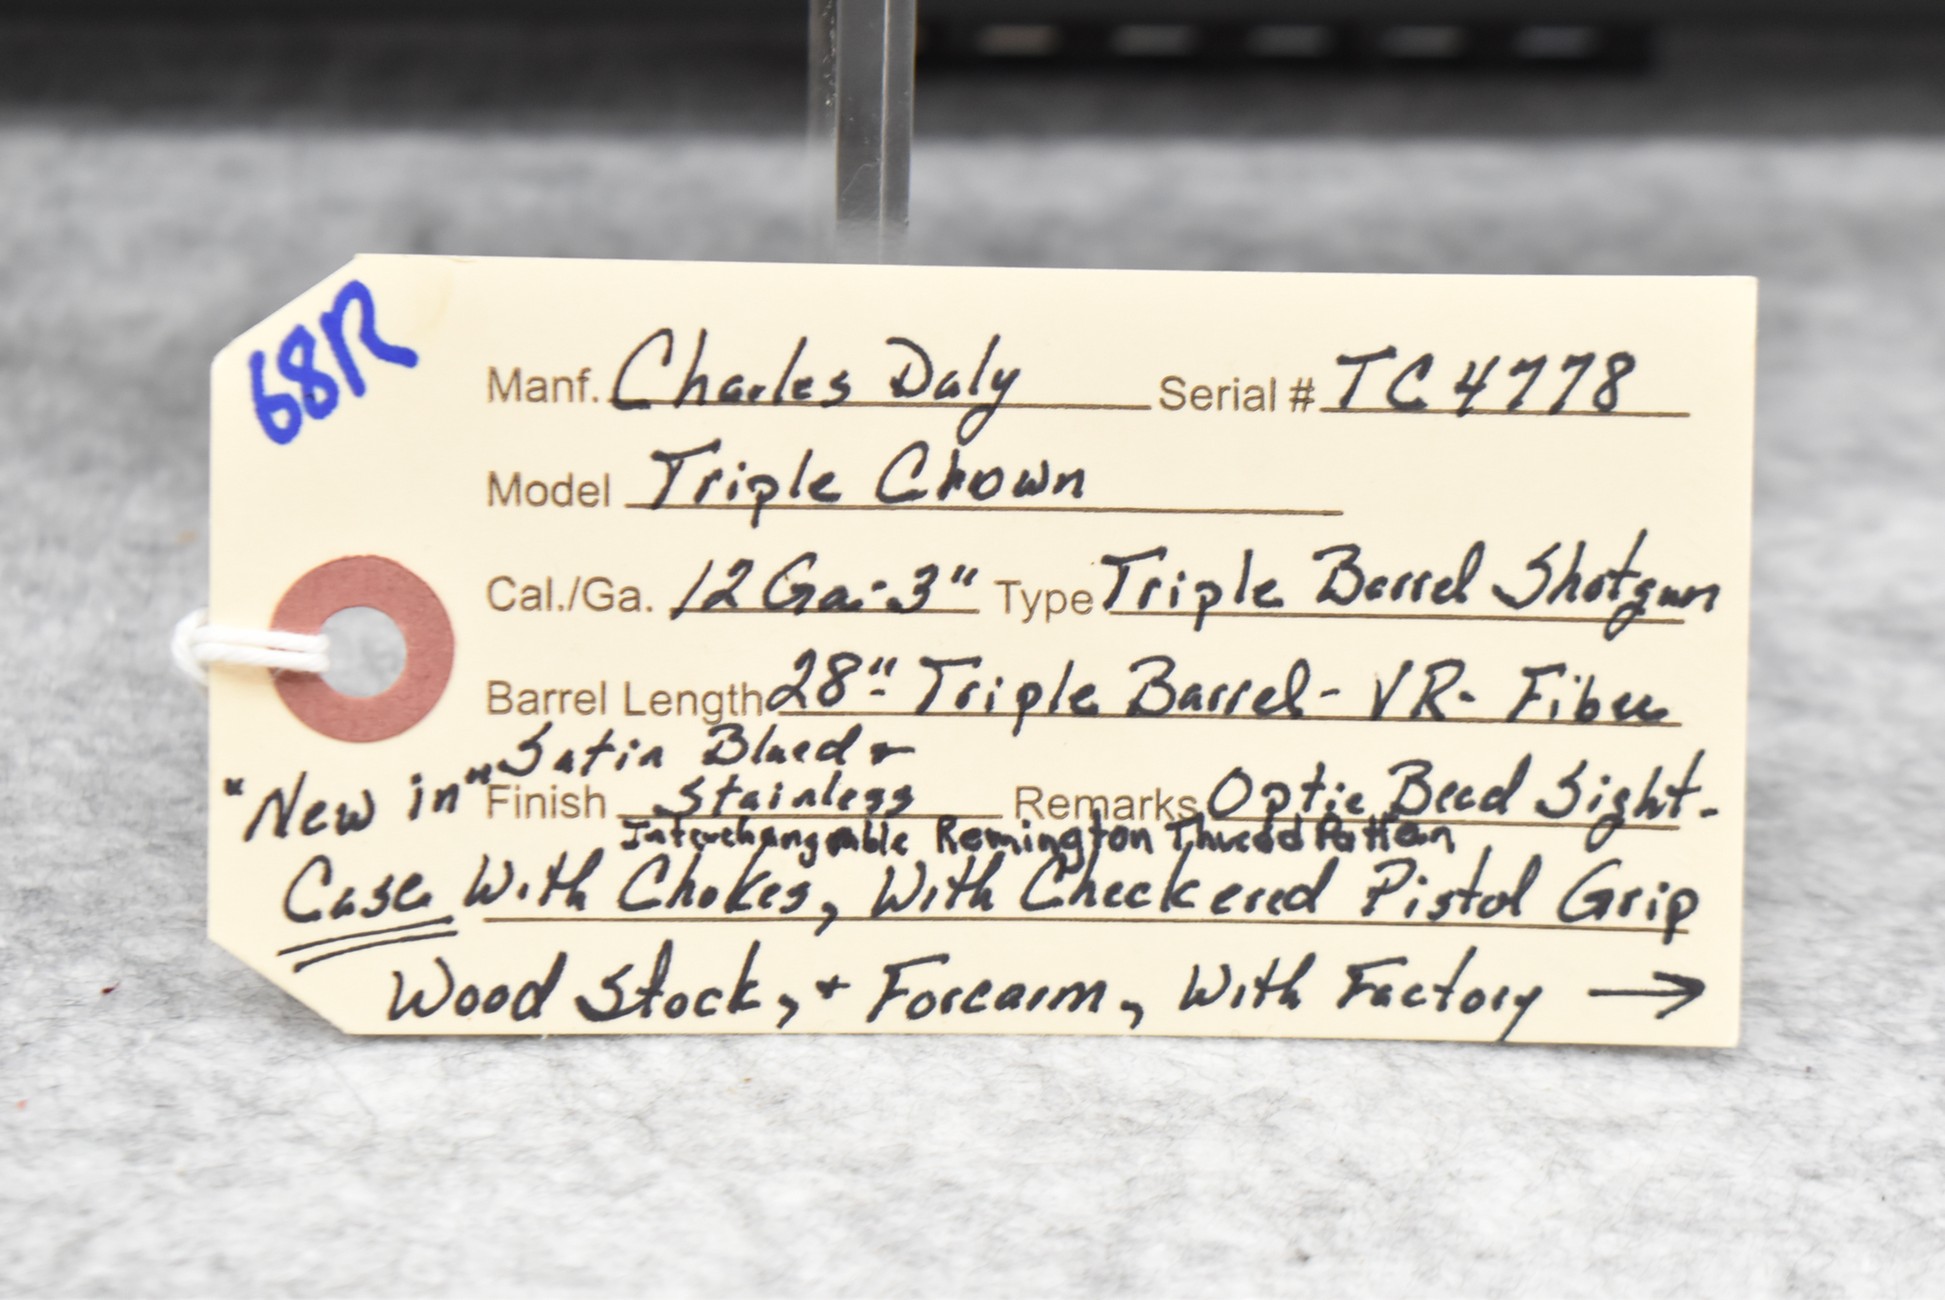 68R
Manf. Charles Daly Serial # TC4778
Model Triple Crown
Cal./Ga. 12 Ga-3" Type Triple Barrel Shotgun
Barrel Length 28"- Triple Barrel - VR- Fiber
Satin Blued +
"New in" Finish Stainless Remarks Optic Bead Sight-
Interchangeable Remington Thread Pattern
Case With Chokes, With Checkered Pistol Grip
Wood Stock, + Forearm, With Factory →